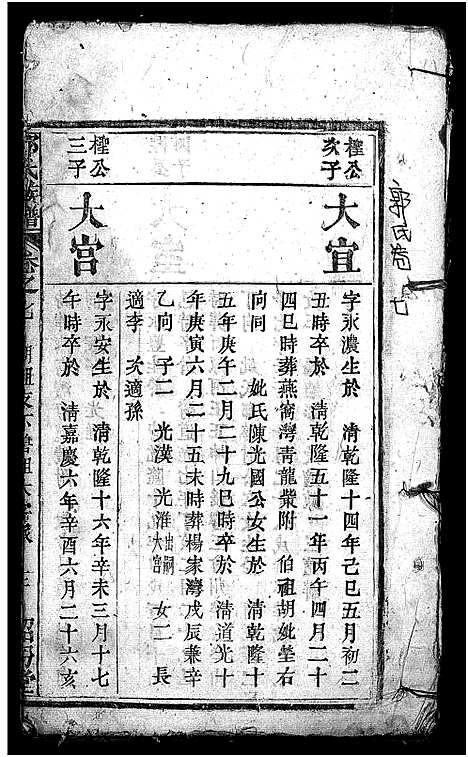 郭氏卷七
檉公次子
大宜
字永濃生於 清乾隆十四年己巳五月初二
丑時卒於 清乾隆五十一年丙午四月二十
四巳時葬燕窩灣青龍觜附 伯祖胡妣塋右
向同 妣氏陳光國公女生於 清乾隆十
五年庚午二月二十九巳時卒於 清道光十
年庚寅六月二十五未時葬楊家灣戌辰兼辛
乙向 子二 光漢 光淮出嗣大宮 女二 長
適李 次適孫
檉公三子
大宮
字永安生於 清乾隆十六年辛未三月十七
午時卒於 清嘉慶六年辛酉六月二十六亥
氏族譜 卷之七